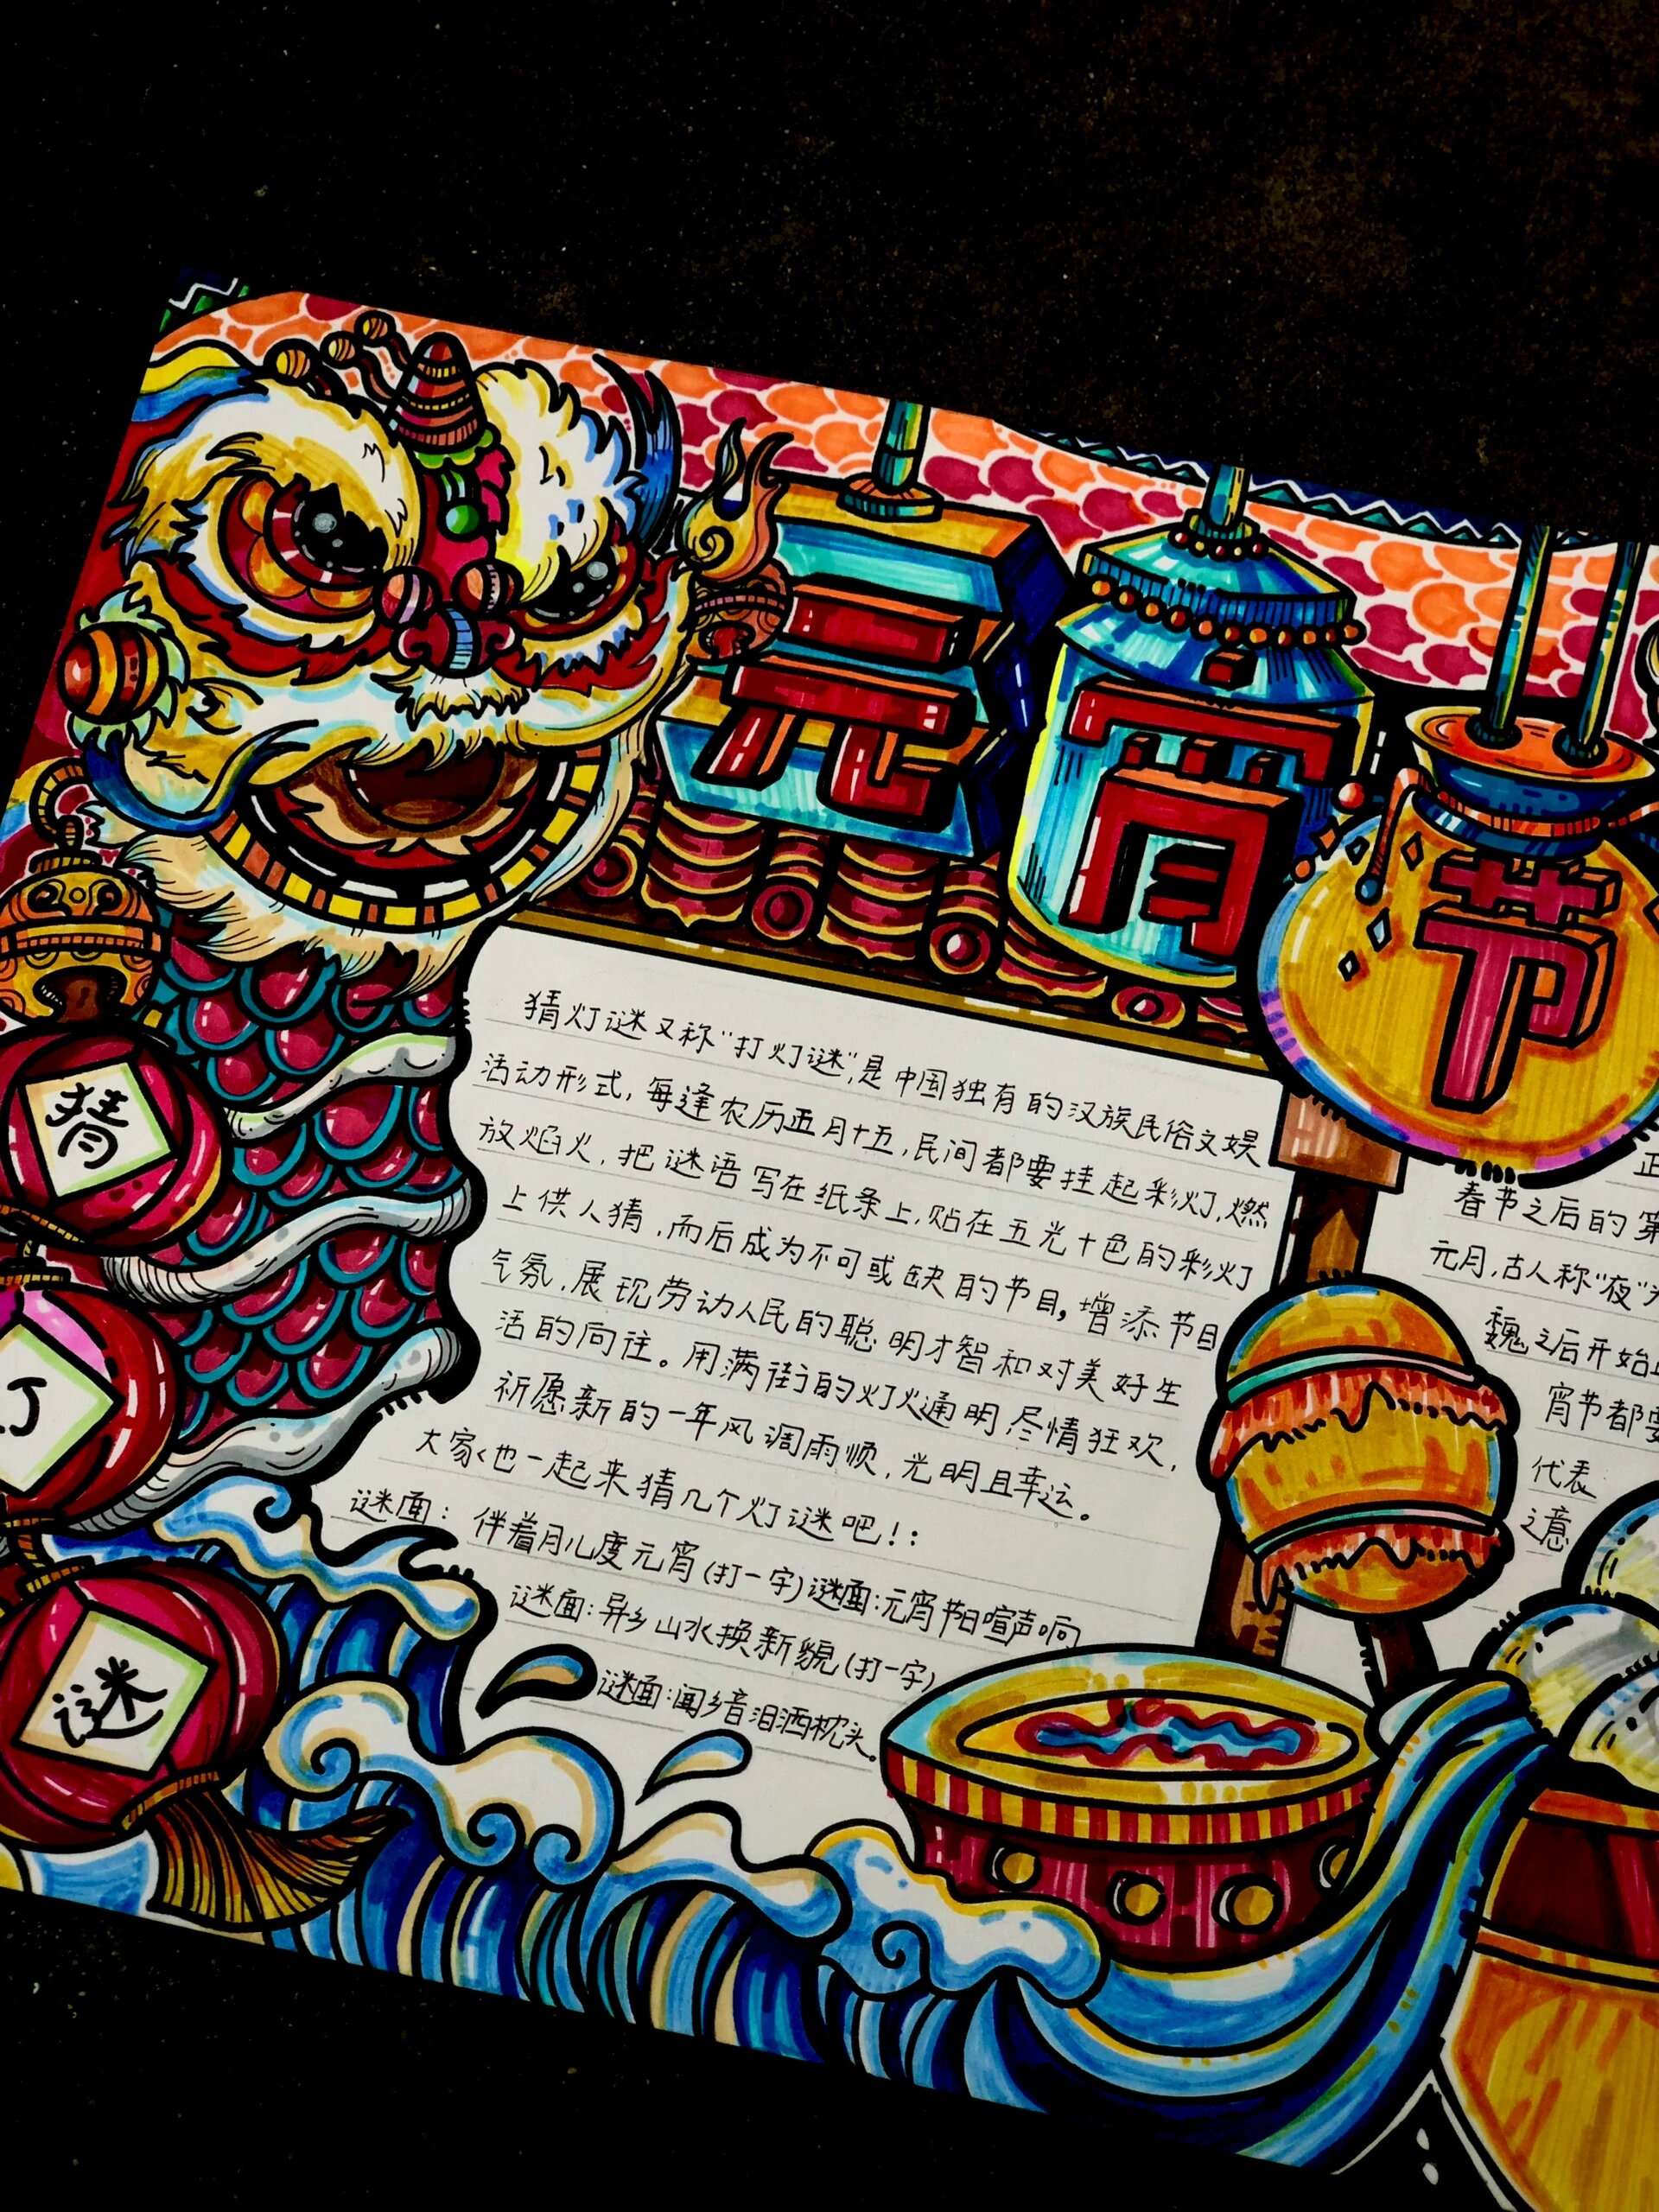 元宵节
猜
灯
谜
猜灯谜又称“打灯谜”,是中国独有的汉族民俗文娱
活动形式,每逢农历五月十五,民间都要挂起彩灯,燃
放焰火,把谜语写在纸条上,贴在五光十色的彩灯
上供人猜,而后成为不可或缺的节目,增添节目
气氛,展现劳动人民的聪明才智和对美好生
活的向往。用满街的灯火通明,尽情狂欢,
祈愿新的一年风调雨顺,光明且幸运。
大家也一起来猜几个灯谜吧!:
谜面:伴着月儿度元宵(打一字)谜面:元宵节日喧声响
谜面:异乡山水换新貌(打一字)
谜面:闻乡音泪洒枕头。
正
春节之后的第
元月,古人称“夜”为
魏之后开始
宵节都要
代表
之意